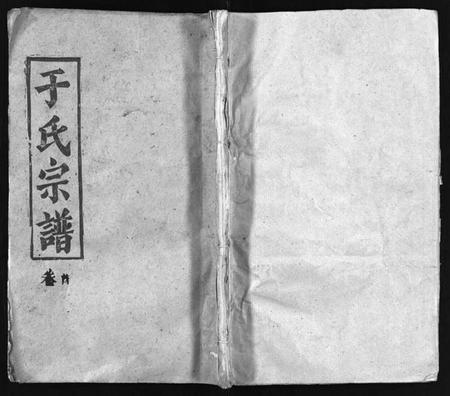 于氏宗譜
卷